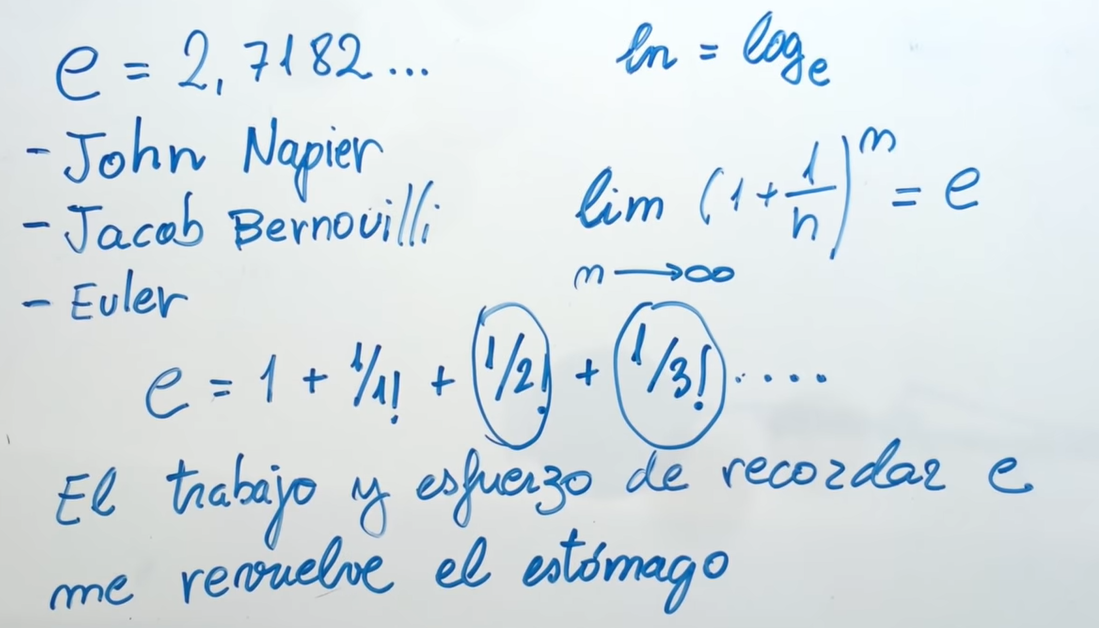 e = 2,7182...
ln = logₑ
- John Napier
- Jacob Bernouilli
- Euler
lim (1 + 1/n)^n = e
n → ∞
e = 1 + 1/1! + 1/2! + 1/3! ....
El trabajo y esfuerzo de recordar e
me revuelve el estómago